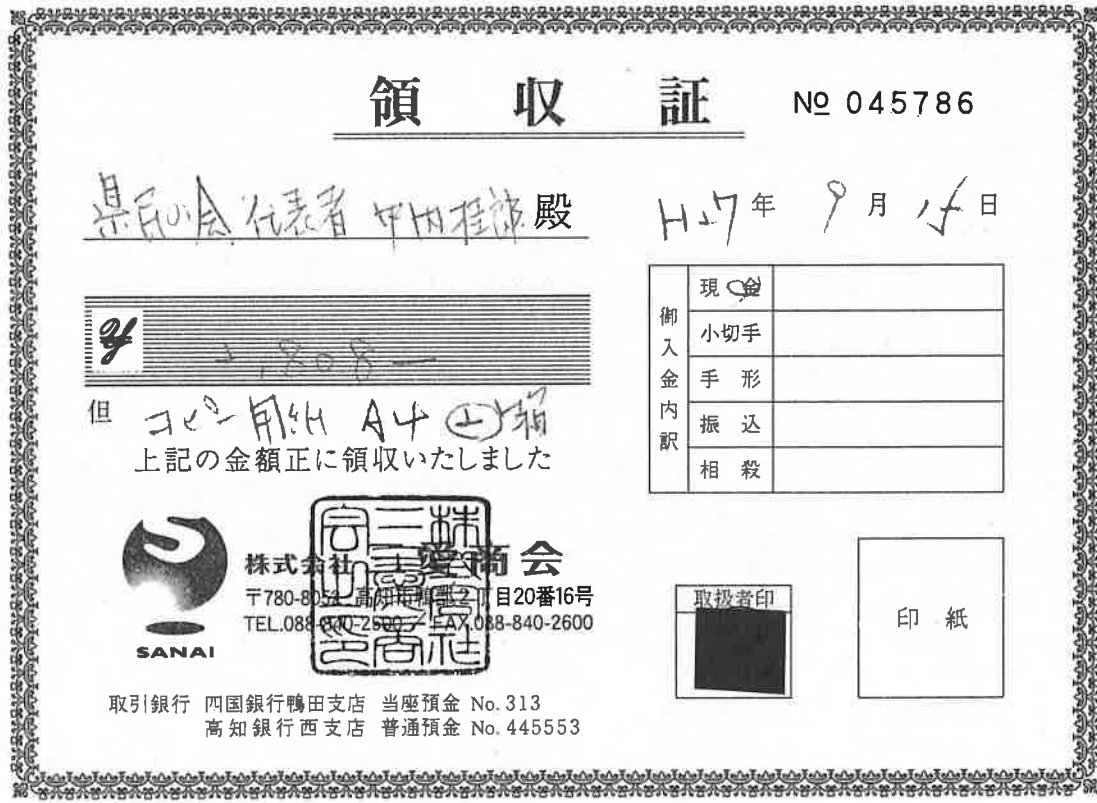 領 収 証
№ 045786
県民の会 代表者 中内桂郎 殿
H27年 9月 15日
¥ 2,808-
但 コピー用紙 A4 ② 箱
上記の金額正に領収いたしました
御入金内訳
現金
小切手
手形
振込
相殺
株式会社 三愛商会
目20番16号
TEL.088-840-2600 / FAX.088-840-2600
SANAI
取扱者印
印紙
取引銀行 四国銀行鴨田支店 当座預金 No.313
高知銀行西支店 普通預金 No.445553